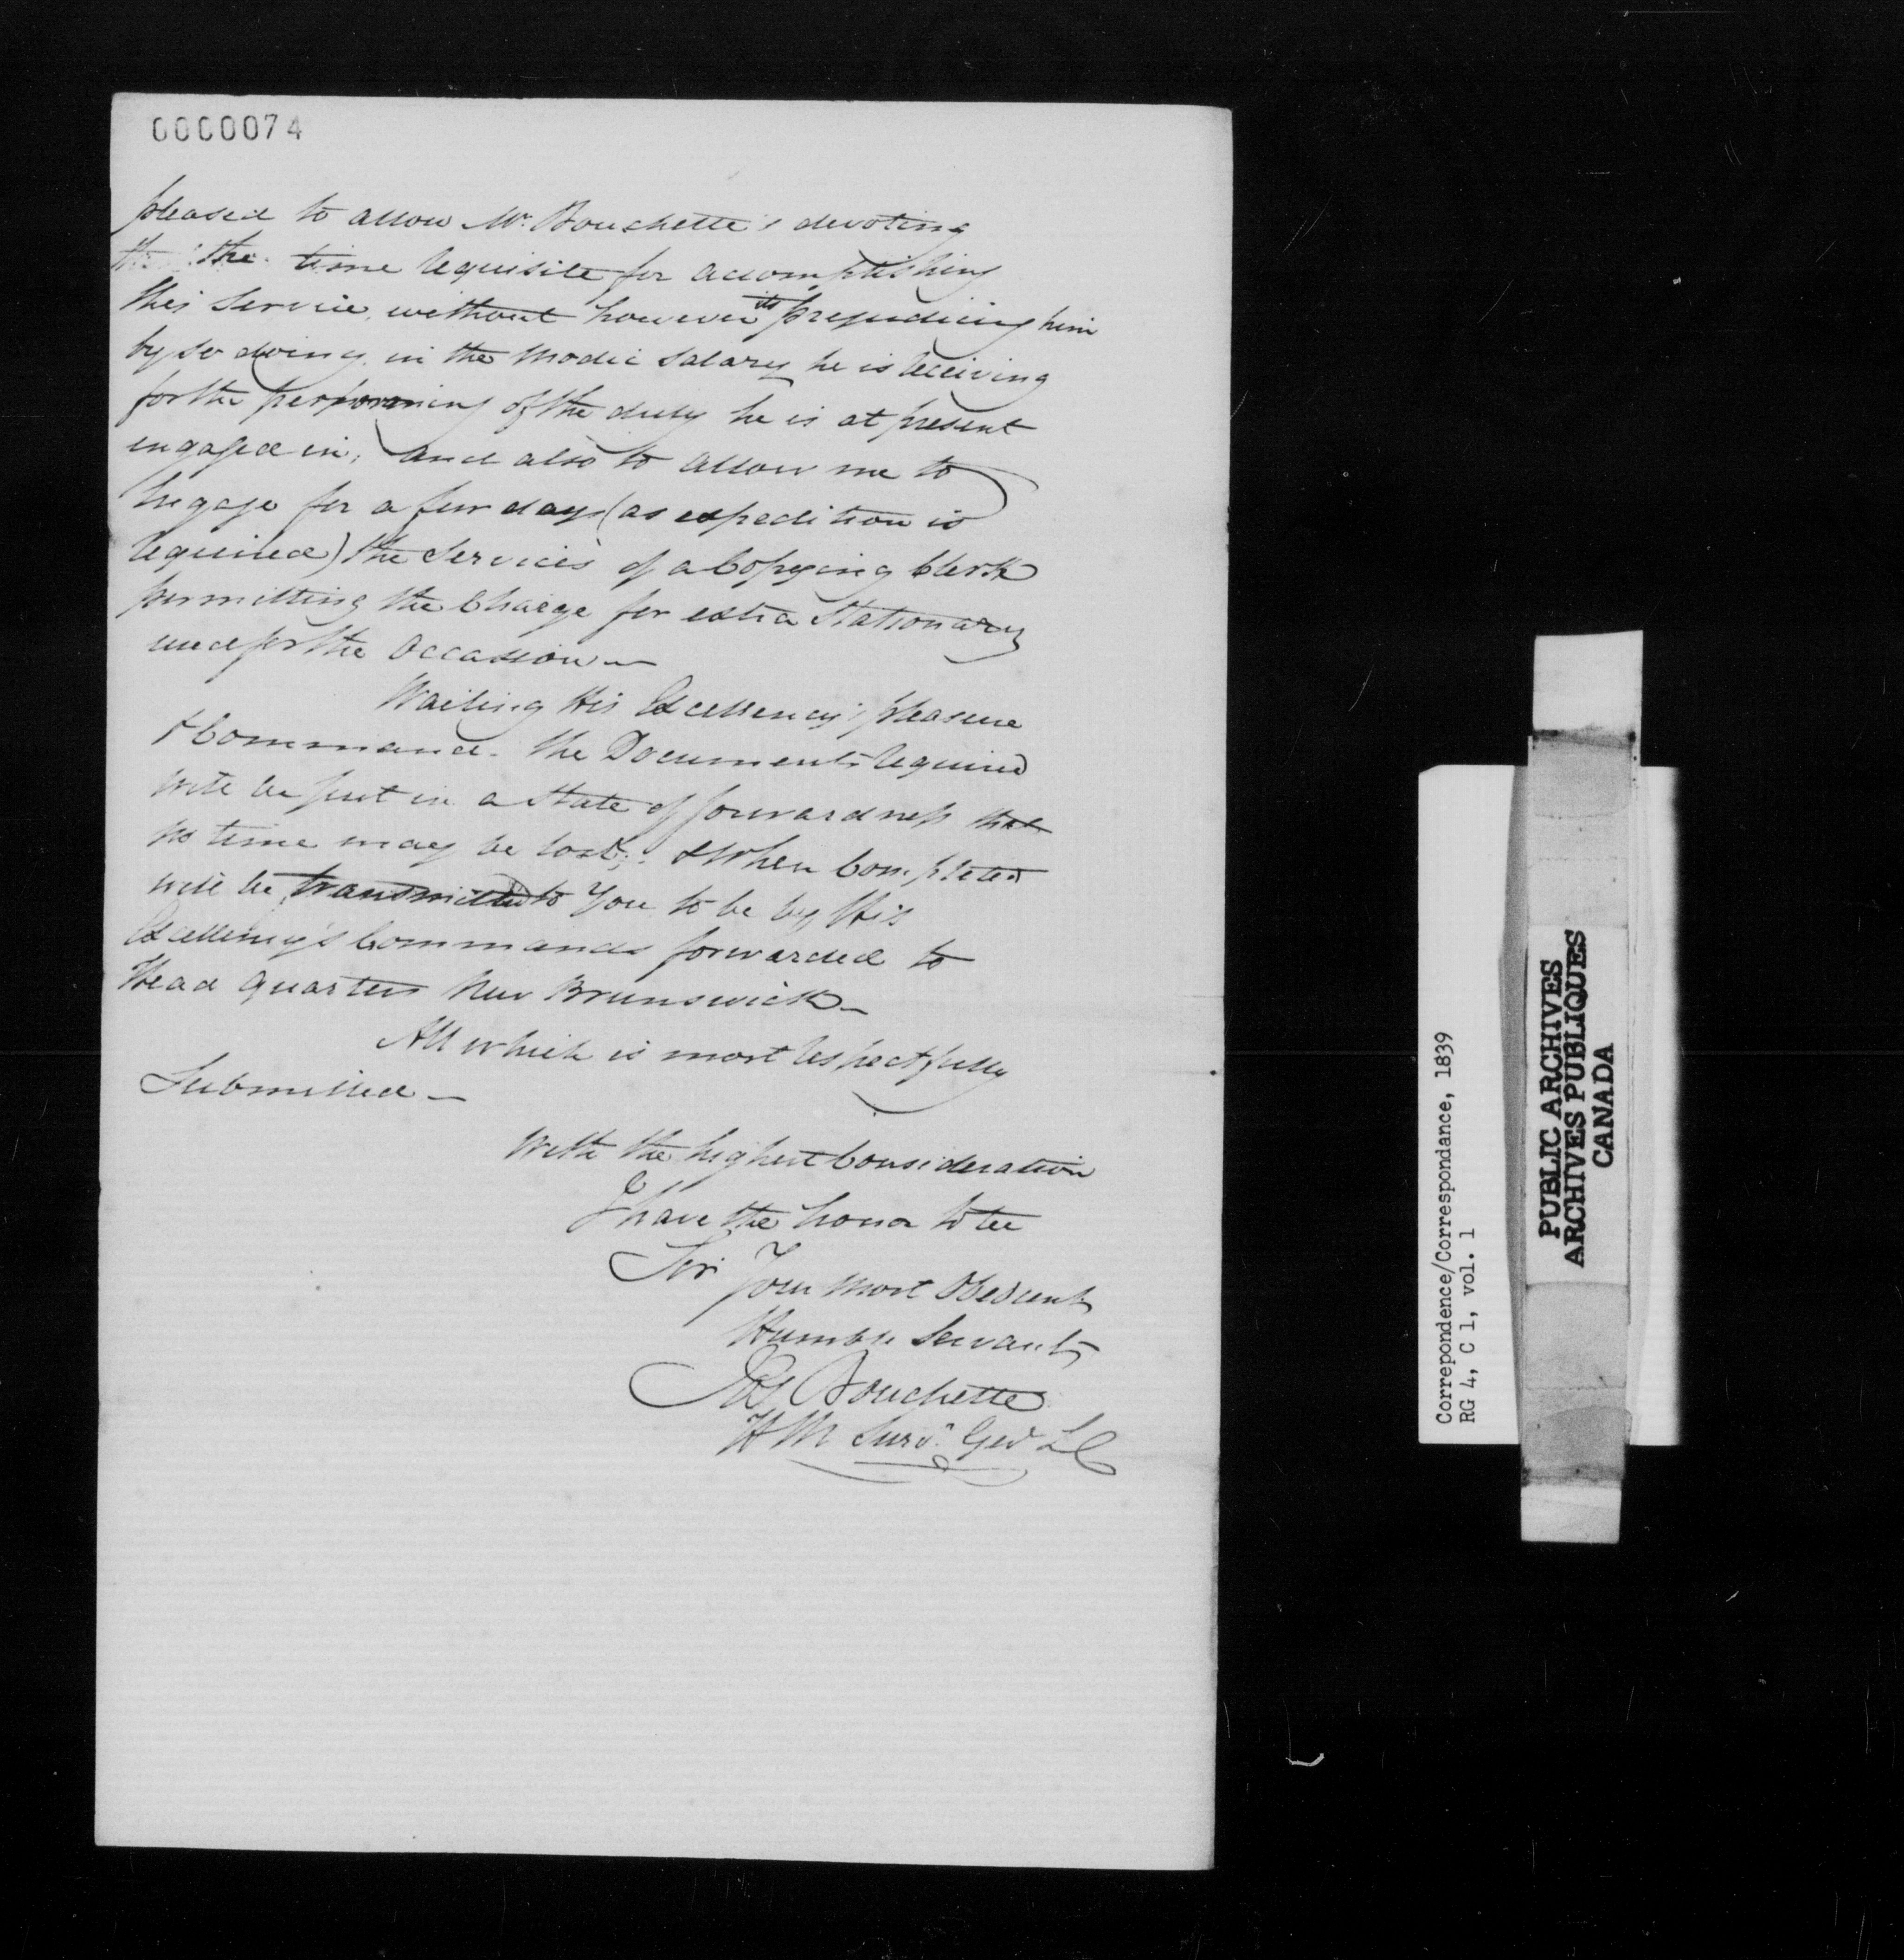 0000074
pleased to allow Mr. Bouchette's devoting
the time requisite for accomplishing
this Service, without however its prejudicing him
by so doing, in the modic salary he is receiving
for the performing of the duty he is at present
engaged in; and also to allow me to
engage for a few days (as expedition is
required) the Services of a Copying Clerk
permitting the Charge for extra Stationary
used for the Occasion —
Waiting His Excellency's pleasure
& Command - the Documents required
will be put in a state of forwardness that
no time may be lost; & When Completed
will be transmitted to You to be by His
Excellency's Commands forwarded to
Head Quarters New Brunswick —
All which is most respectfully
Submitted —
With the highest Consideration
I have the honor to be
Sir Your Most Obedient
Humble Servant
Jos Bouchette
H M Survr. Genl L C
Correpondence/Correspondance, 1839
RG 4, C 1, vol. 1
PUBLIC ARCHIVES
ARCHIVES PUBLIQUES
CANADA